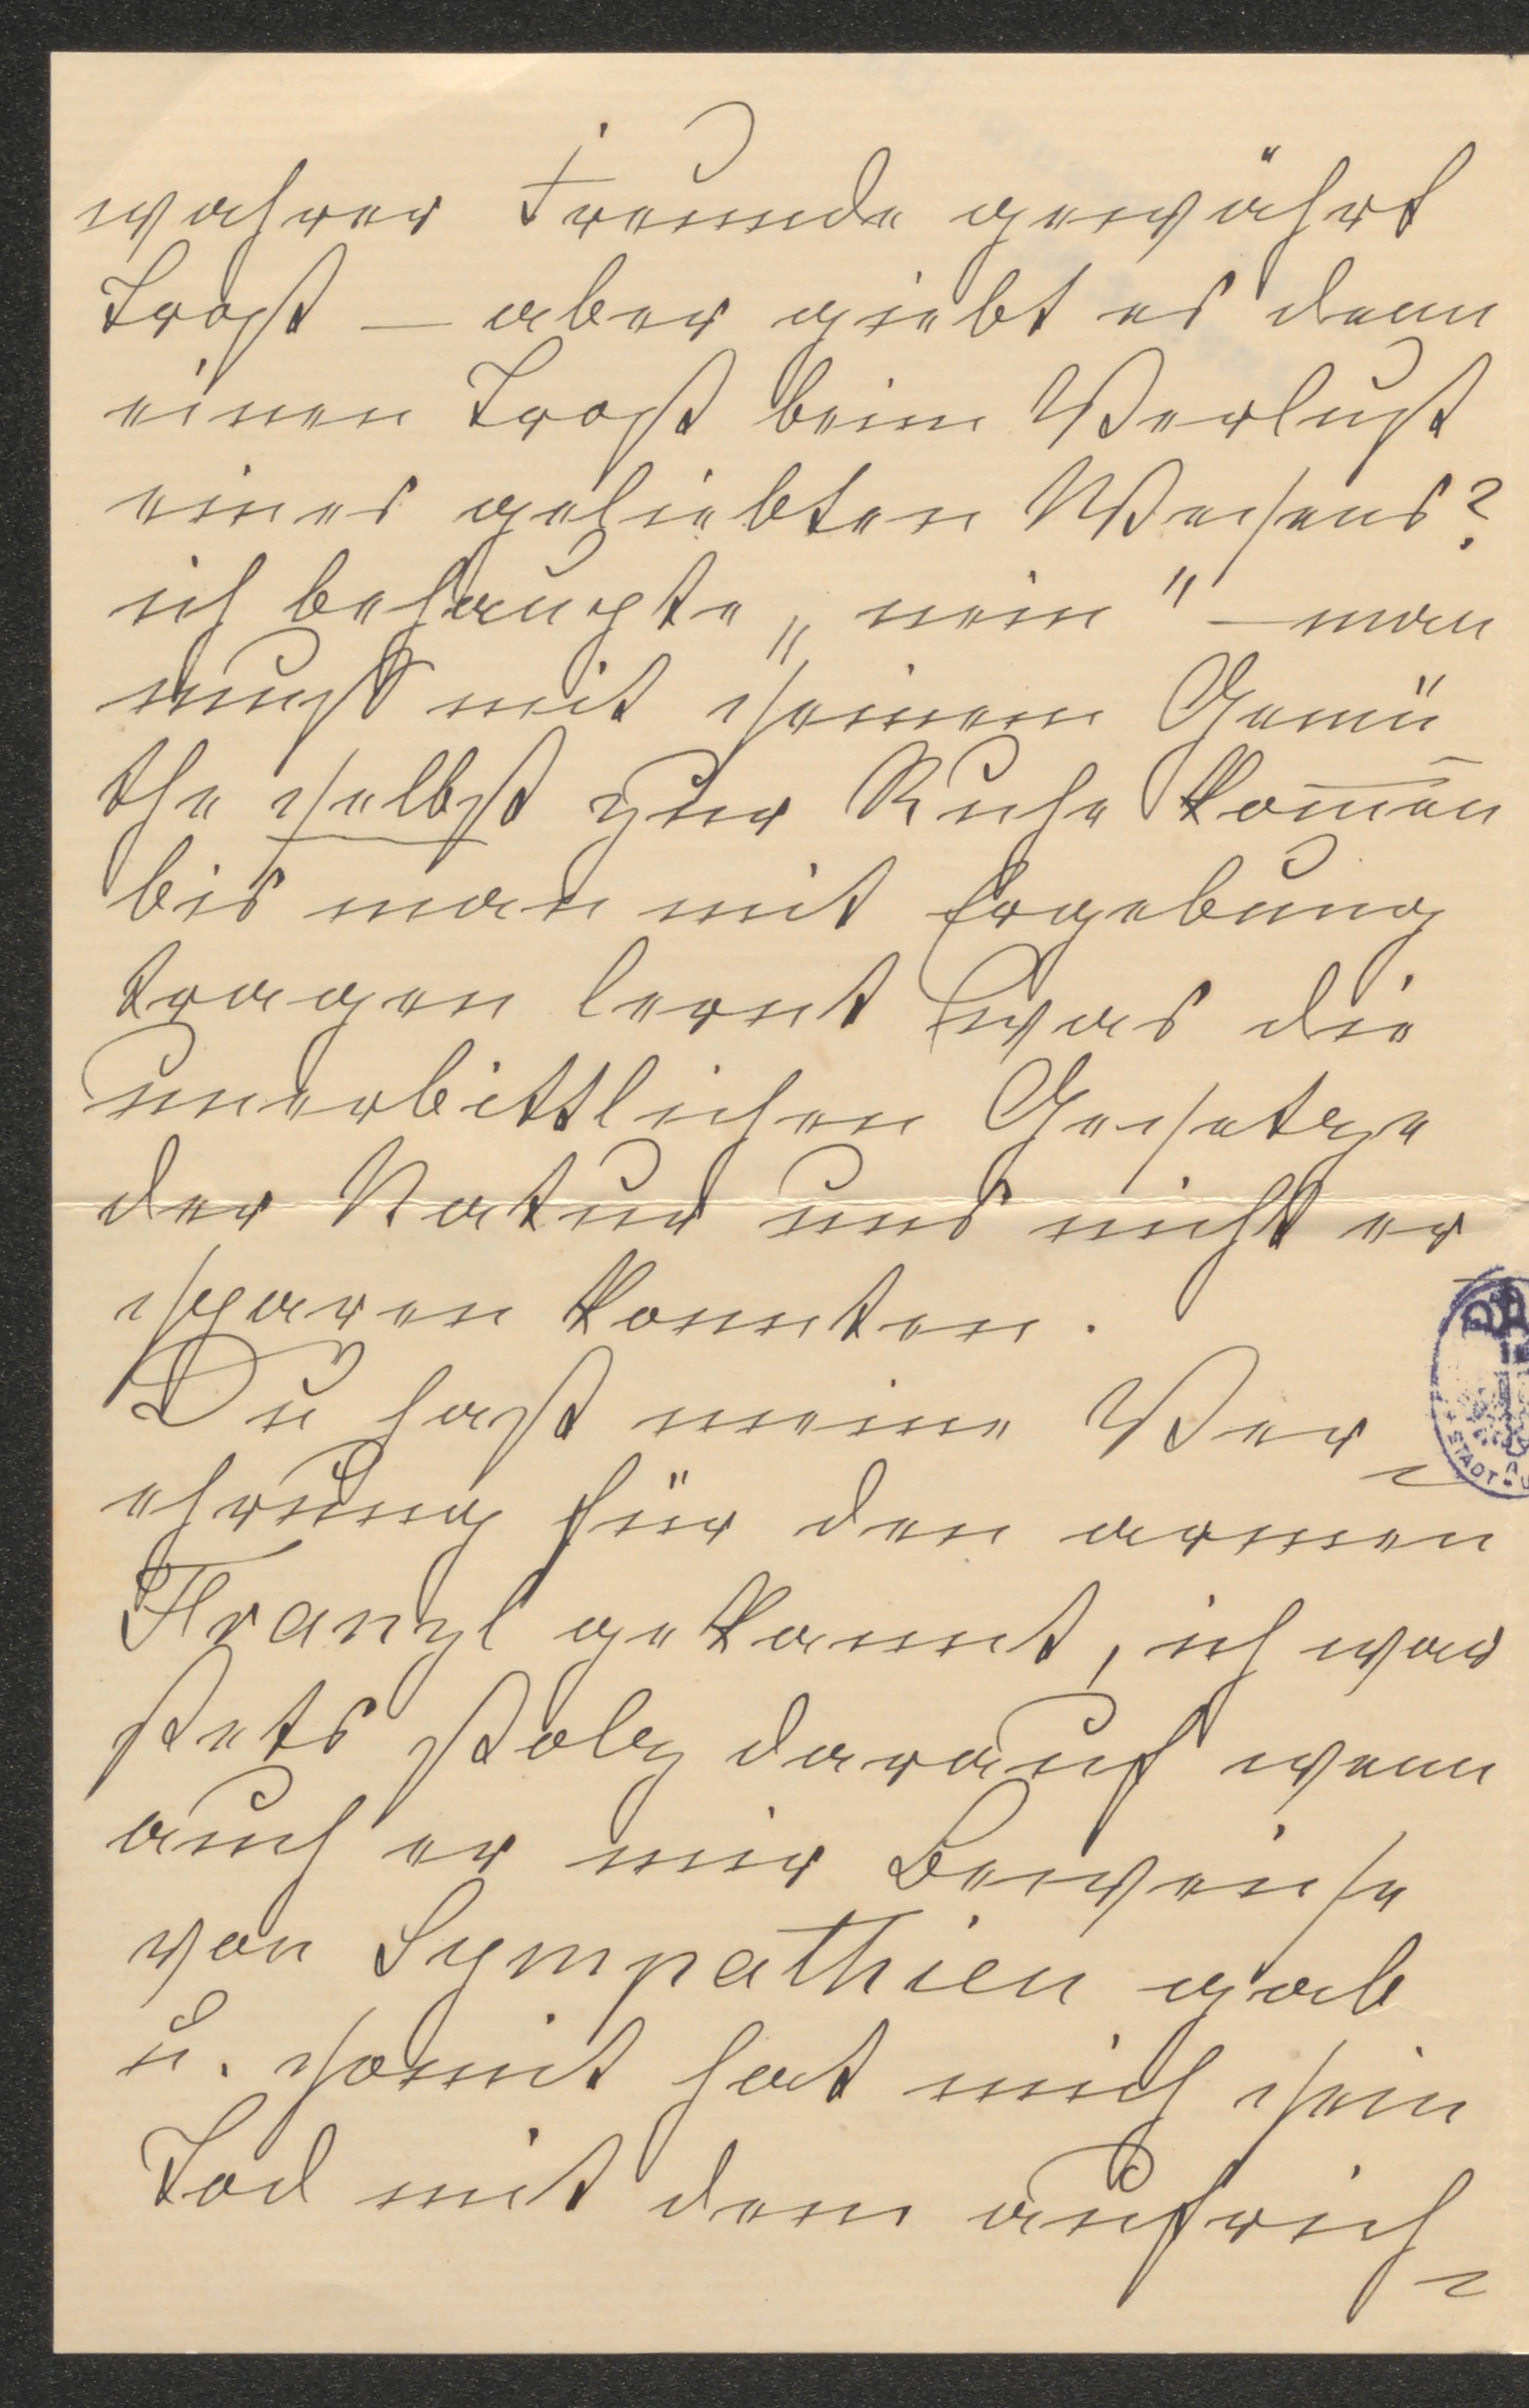 wahrer Freunde gewährt
Trost — aber giebt es denn
einen Trost beim Verlust
eines geliebten Wesens?
ich behaupte „nein" — man
muß mit seinem Gemü
the selbst zur Ruhe kom̅en
bis man mit Ergebung
tragen lernt was die
unerbittlichen Gesetze
der Natur uns nicht er
sparen konnten.
Du hast meine Ver-
ehrung für den armen
Franzl gekannt, ich war
stets stolz darauf wenn
auch er mir Beweise
von Sympathien gab
u. somit hat mich sein
Tod mit dem aufrich-
STADT